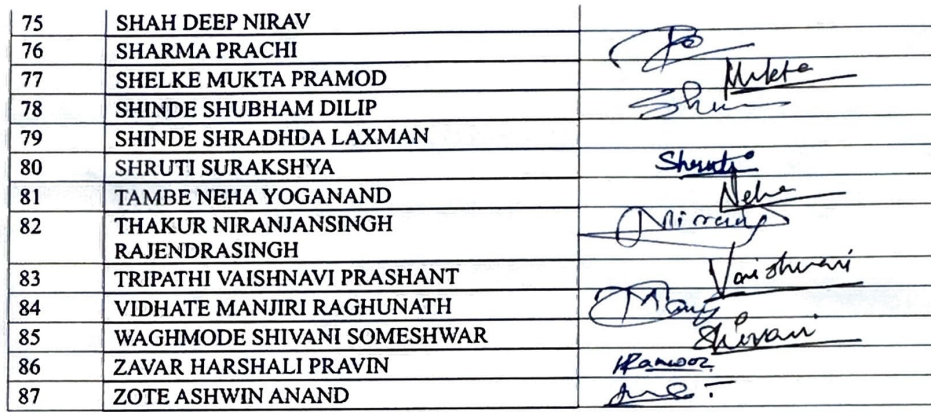 75 SHAH DEEP NIRAV
76 SHARMA PRACHI
77 SHELKE MUKTA PRAMOD Mukta
78 SHINDE SHUBHAM DILIP
79 SHINDE SHRADHDA LAXMAN
80 SHRUTI SURAKSHYA Shruti
81 TAMBE NEHA YOGANAND Neha
82 THAKUR NIRANJANSINGH
RAJENDRASINGH
83 TRIPATHI VAISHNAVI PRASHANT Vaishnavi
84 VIDHATE MANJIRI RAGHUNATH
85 WAGHMODE SHIVANI SOMESHWAR Shivani
86 ZAVAR HARSHALI PRAVIN
87 ZOTE ASHWIN ANAND